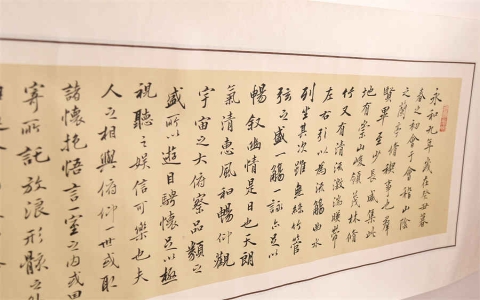 永和九年歲在癸丑暮
春之初會于會稽山陰
之蘭亭脩禊事也羣
賢畢至少長咸集此
地有崇山峻領茂林脩
竹又有清流激湍暎帶
左右引以為流觴曲水
列坐其次雖無絲竹管
弦之盛一觴一詠亦足以
暢叙幽情是日也天朗
氣清惠風和暢仰觀
宇宙之大俯察品類之
盛所以遊目騁懷足以極
視聽之娛信可樂也夫
人之相與俯仰一世或取
諸懷抱悟言一室之內或因
寄所託放浪形骸之